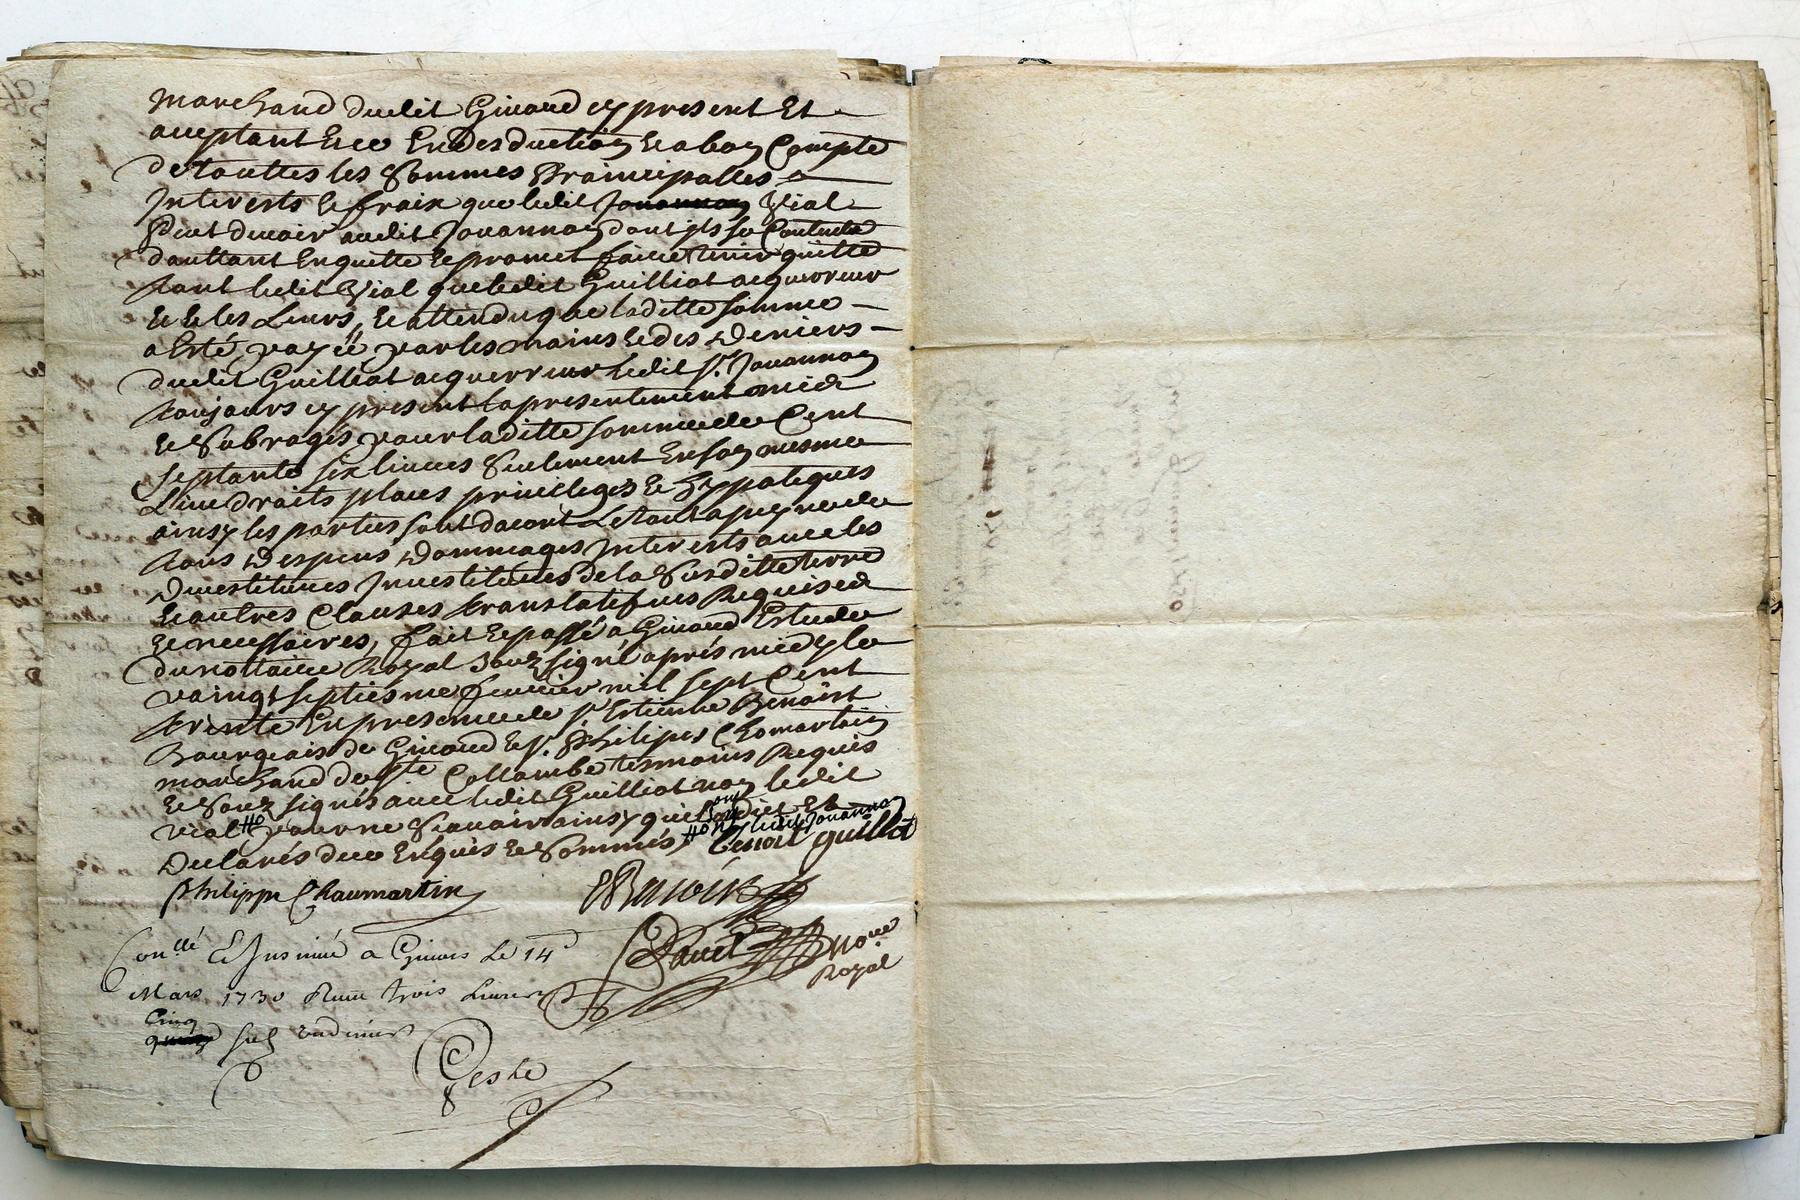 marchand dudit Givord cy present Et
acceptant Et ce En desduction Et a bon Compte
de touttes les sommes Praincipalles
Interests Et frais que ledit Jouannon Vial
Peut devoir audit Jouannon dont jls se Contente
dauttant En quitte Et promet faire tenir quitte
tant ledit Vial que ledit Guilliot acquerreur
Et les Leurs, Et attendu que laditte somme
a Esté payée par les mains Et des Deniers
dudit Guilliot acquerreur ledit Sr. Jouannon
toujours cy present la presentement mis
Et Subrogés pour laditte somme de Cent
septante six livres seulement En son mesme
Lieu droits places privileges Et hypoteques
ainsy les parties sont dacort Le tout a peyne de
tous Despens Dommages Interests avec les
Divestitures Investitures de la Susditte terre
Et autres Clauses translatifves Requises
Et necessaires, fait Et passé a Givord Estude
du nottaire Royal Souzsigné aprés midy le
vaingt septiesme fevrier mil sept Cent
trente En presence de Sr. Estienne Benoist
Bourgeois de Givord Et Sr. Philipes Chomartin
marchand de Ste Collombe tesmoins Requis
Et Souz signés avec ledit Guilliot non ledit
Vial pour ne Scavoir ainsy quil
Declarés de ce Enquis Et Sommés benoit guillot
Philippe Chaumartin EBenoist
Conllé Et Insinué a Givors Le 14e
Mars 1730 Reçu trois Livres
Cinq
sols
Royal